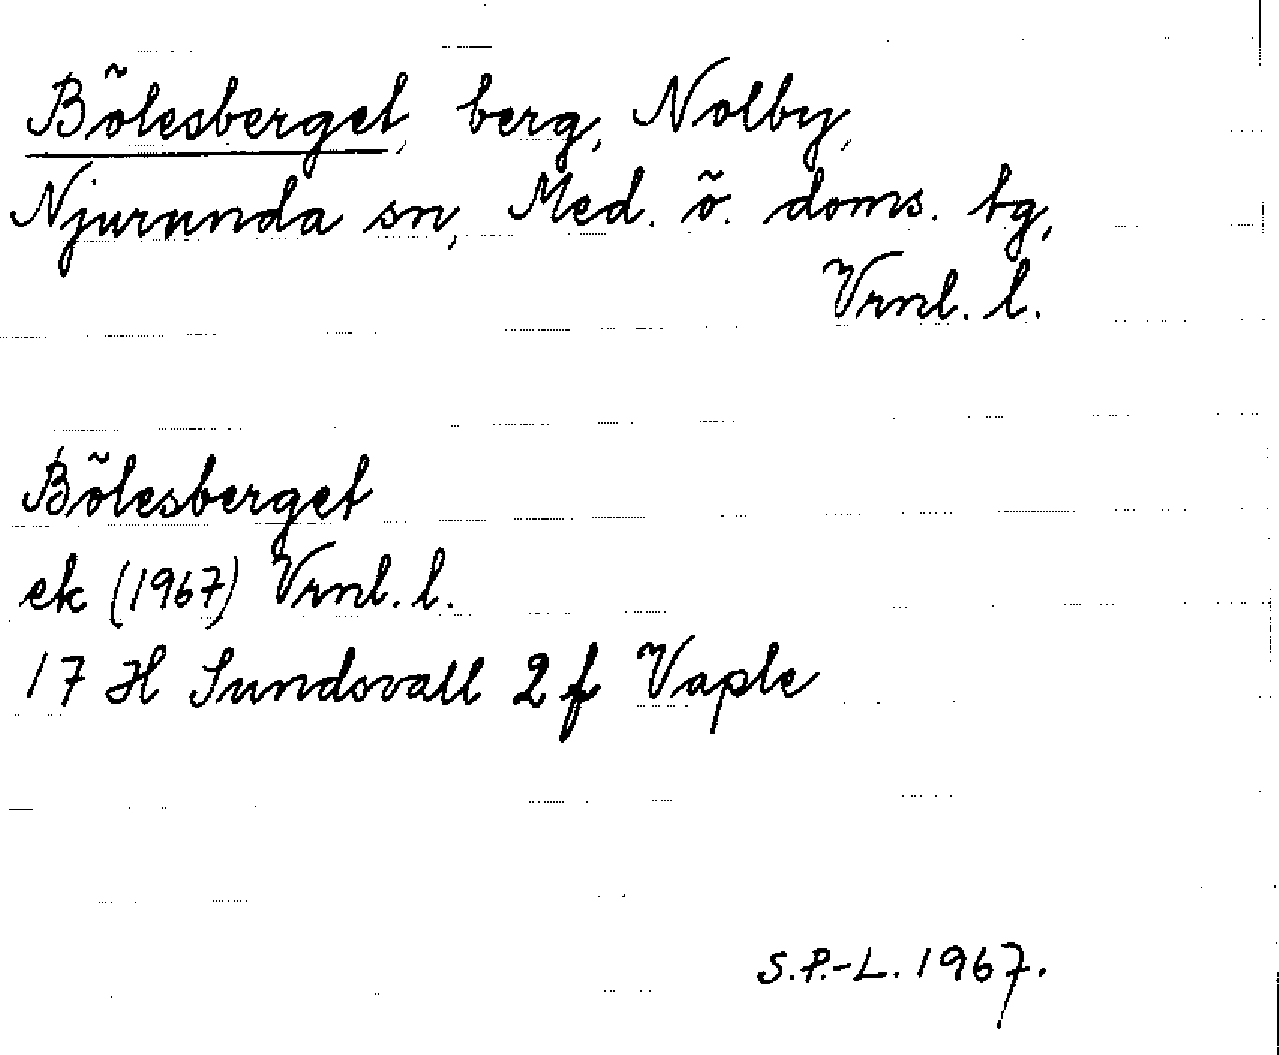 Bölesberget, berg, Nolby,
Njurunda sn, Med. ö. doms. tg,
Vrnl. l.
Bölesberget
ek (1967) Vrnl. l.
17 H Sundsvall 2 f Vaple
S.P.-L. 1967.